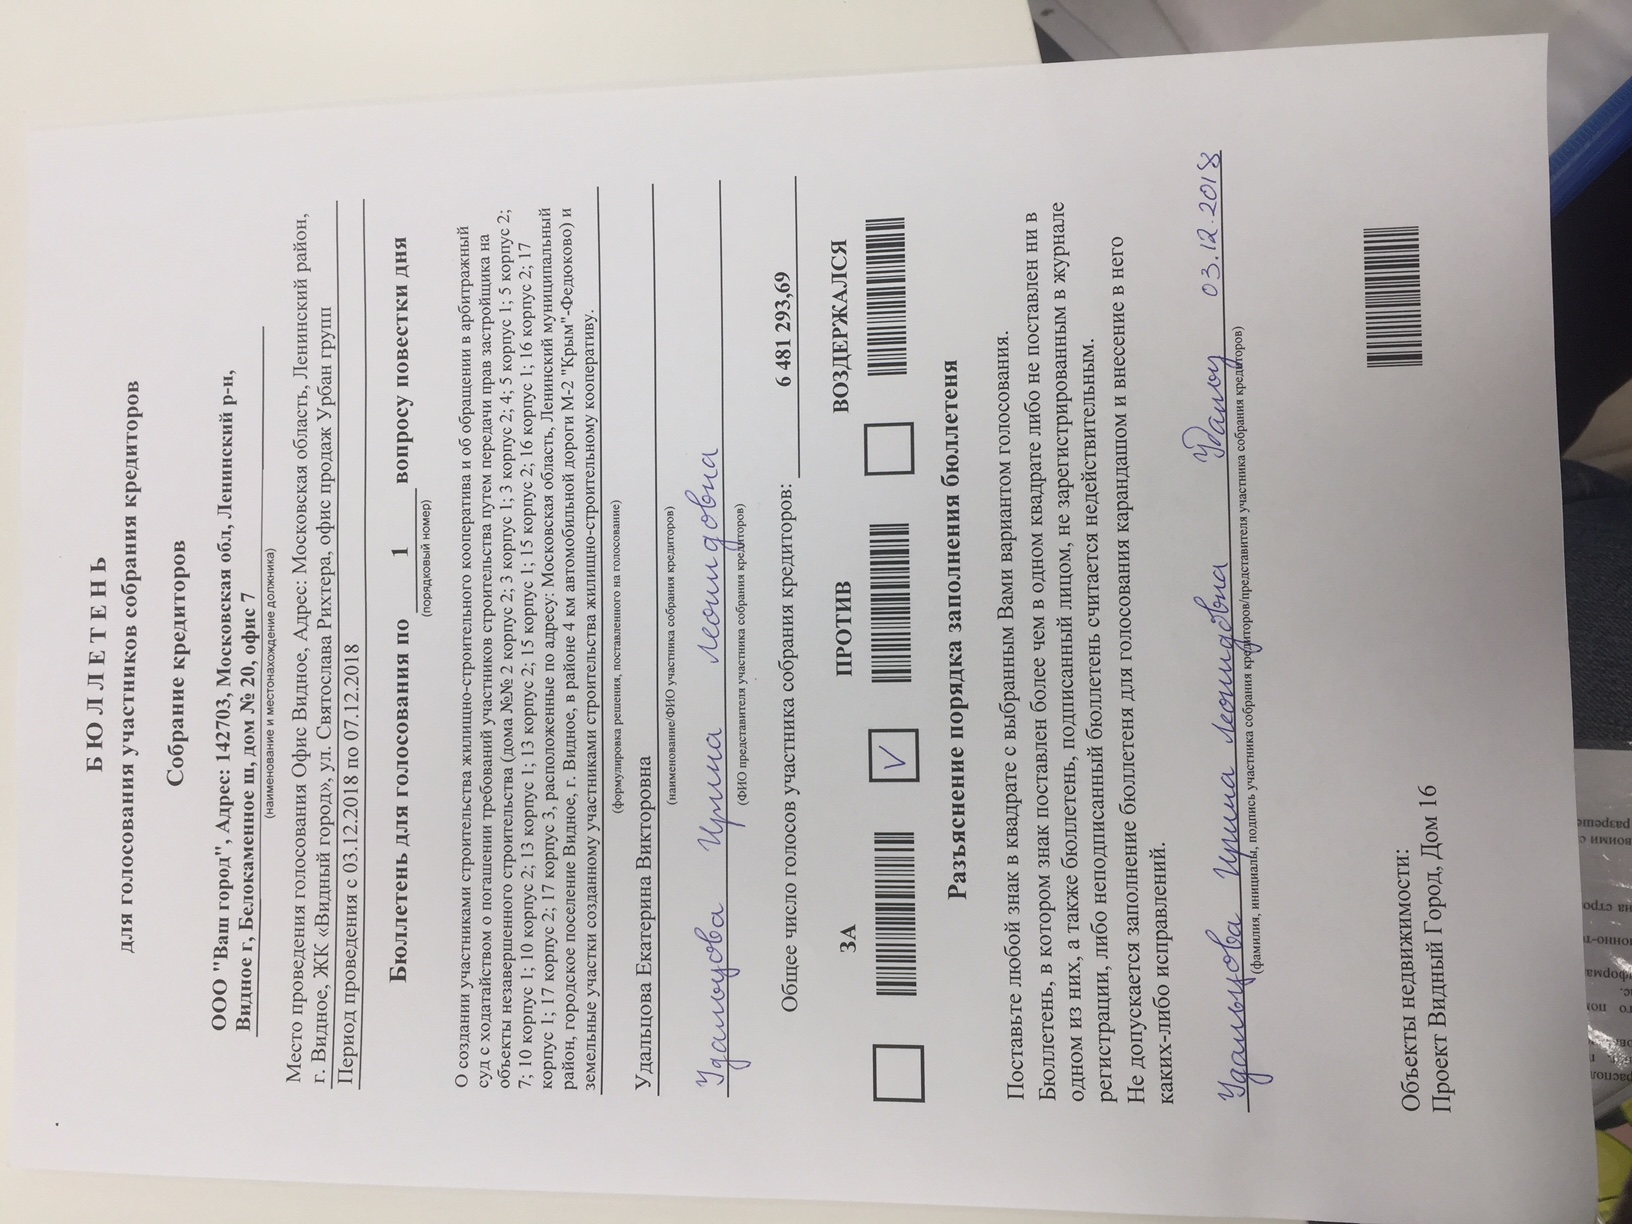 БЮЛЛЕТЕНЬ
для голосования участников собрания кредиторов
Собрание кредиторов
ООО "Ваш город", Адрес: 142703, Московская обл, Ленинский р-н,
Видное г, Белокаменное ш, дом № 20, офис 7
(наименование и местонахождение должника)
Место проведения голосования Офис Видное, Адрес: Московская область, Ленинский район,
г. Видное, ЖК «Видный город», ул. Святослава Рихтера, офис продаж Урбан групп
Период проведения с 03.12.2018 по 07.12.2018
Бюллетень для голосования по 1 вопросу повестки дня
(порядковый номер)
О создании участниками строительства жилищно-строительного кооператива и об обращении в арбитражный
суд с ходатайством о погашении требований участников строительства путем передачи прав застройщика на
объекты незавершенного строительства (дома №№ 2 корпус 2; 3 корпус 1; 3 корпус 2; 4; 5 корпус 1; 5 корпус 2;
7; 10 корпус 1; 10 корпус 2; 13 корпус 1; 13 корпус 2; 15 корпус 1; 15 корпус 2; 16 корпус 1; 16 корпус 2; 17
корпус 1; 17 корпус 2; 17 корпус 3, расположенные по адресу: Московская область, Ленинский муниципальный
район, городское поселение Видное, г. Видное, в районе 4 км автомобильной дороги М-2 "Крым"-Федюково) и
земельные участки созданному участниками строительства жилищно-строительному кооперативу.
(формулировка решения, поставленного на голосование)
Удальцова Екатерина Викторовна
(наименование/ФИО участника собрания кредиторов)
Удальцова Ирина Леонидовна
(ФИО представителя участника собрания кредиторов)
Общее число голосов участника собрания кредиторов: 6 481 293,69
ЗА ПРОТИВ ВОЗДЕРЖАЛСЯ
V
Разъяснение порядка заполнения бюллетеня
Поставьте любой знак в квадрате с выбранным Вами вариантом голосования.
Бюллетень, в котором знак поставлен более чем в одном квадрате либо не поставлен ни в
одном из них, а также бюллетень, подписанный лицом, не зарегистрированным в журнале
регистрации, либо неподписанный бюллетень считается недействительным.
Не допускается заполнение бюллетеня для голосования карандашом и внесение в него
каких-либо исправлений.
Удальцова Ирина Леонидовна Удальц 03.12.2018
(фамилия, инициалы, подпись участника собрания кредиторов/представителя участника собрания кредиторов)
Объекты недвижимости:
Проект Видный Город, Дом 16